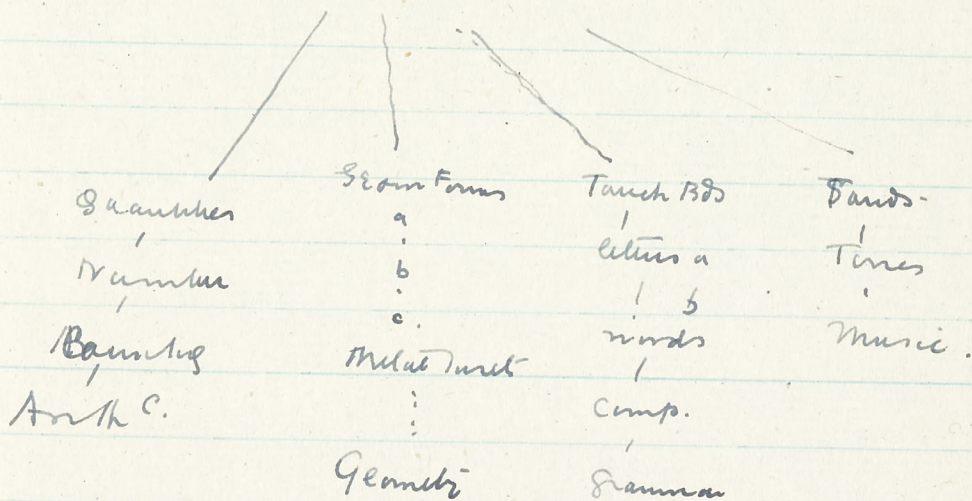 Quantities
Number
Counting
Arith c.
Geom Forms
a
b
c.
Metal Insets
Geometry
Touch Bds
letters a
b
words
Comp.
Grammar
Sounds-
Tones
Music.